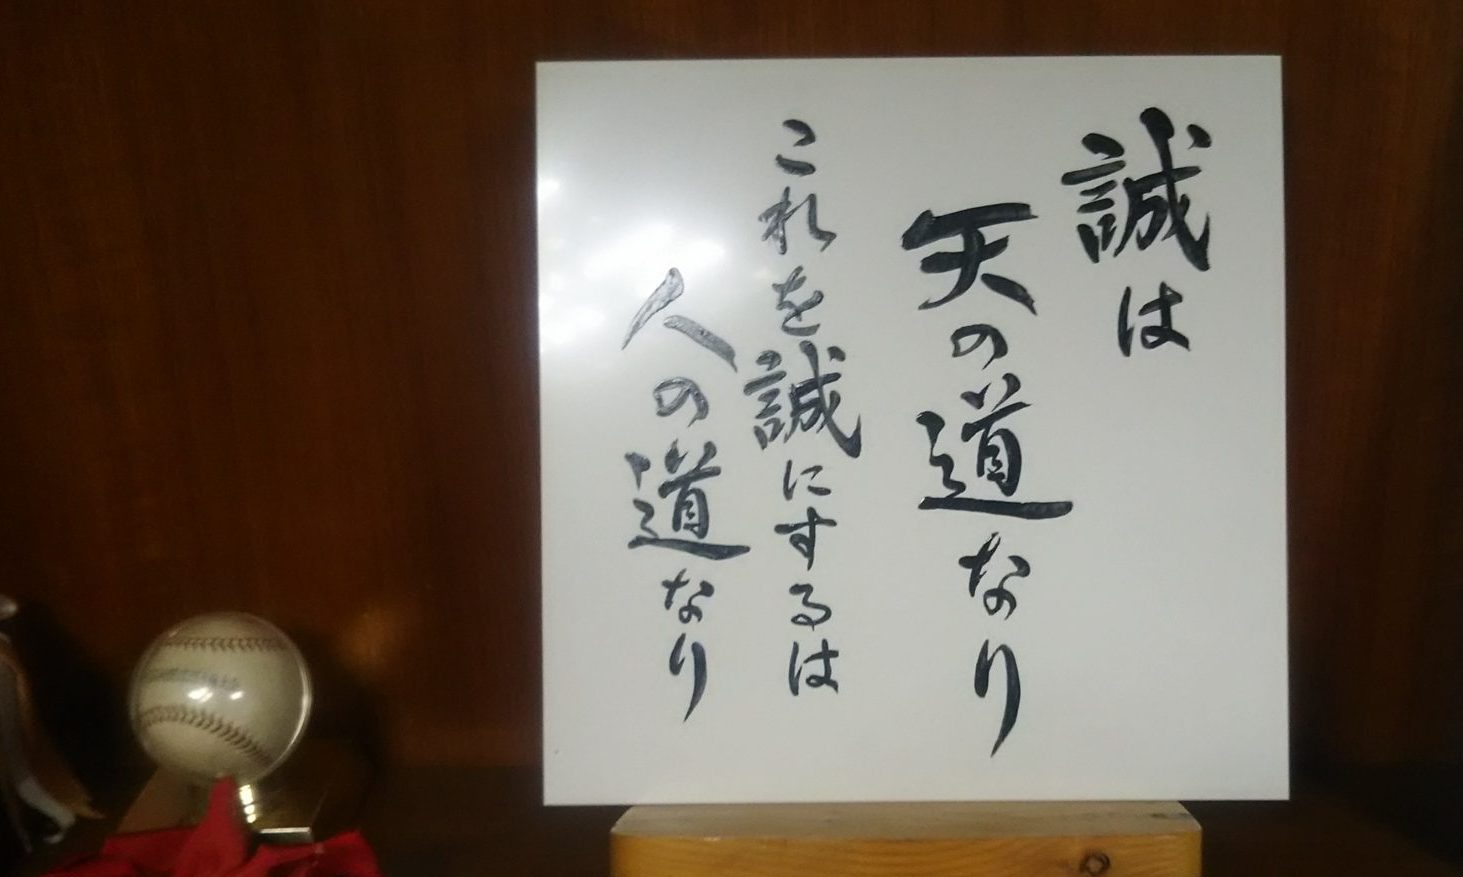 誠は
天の道なり
これを誠にするは
人の道なり